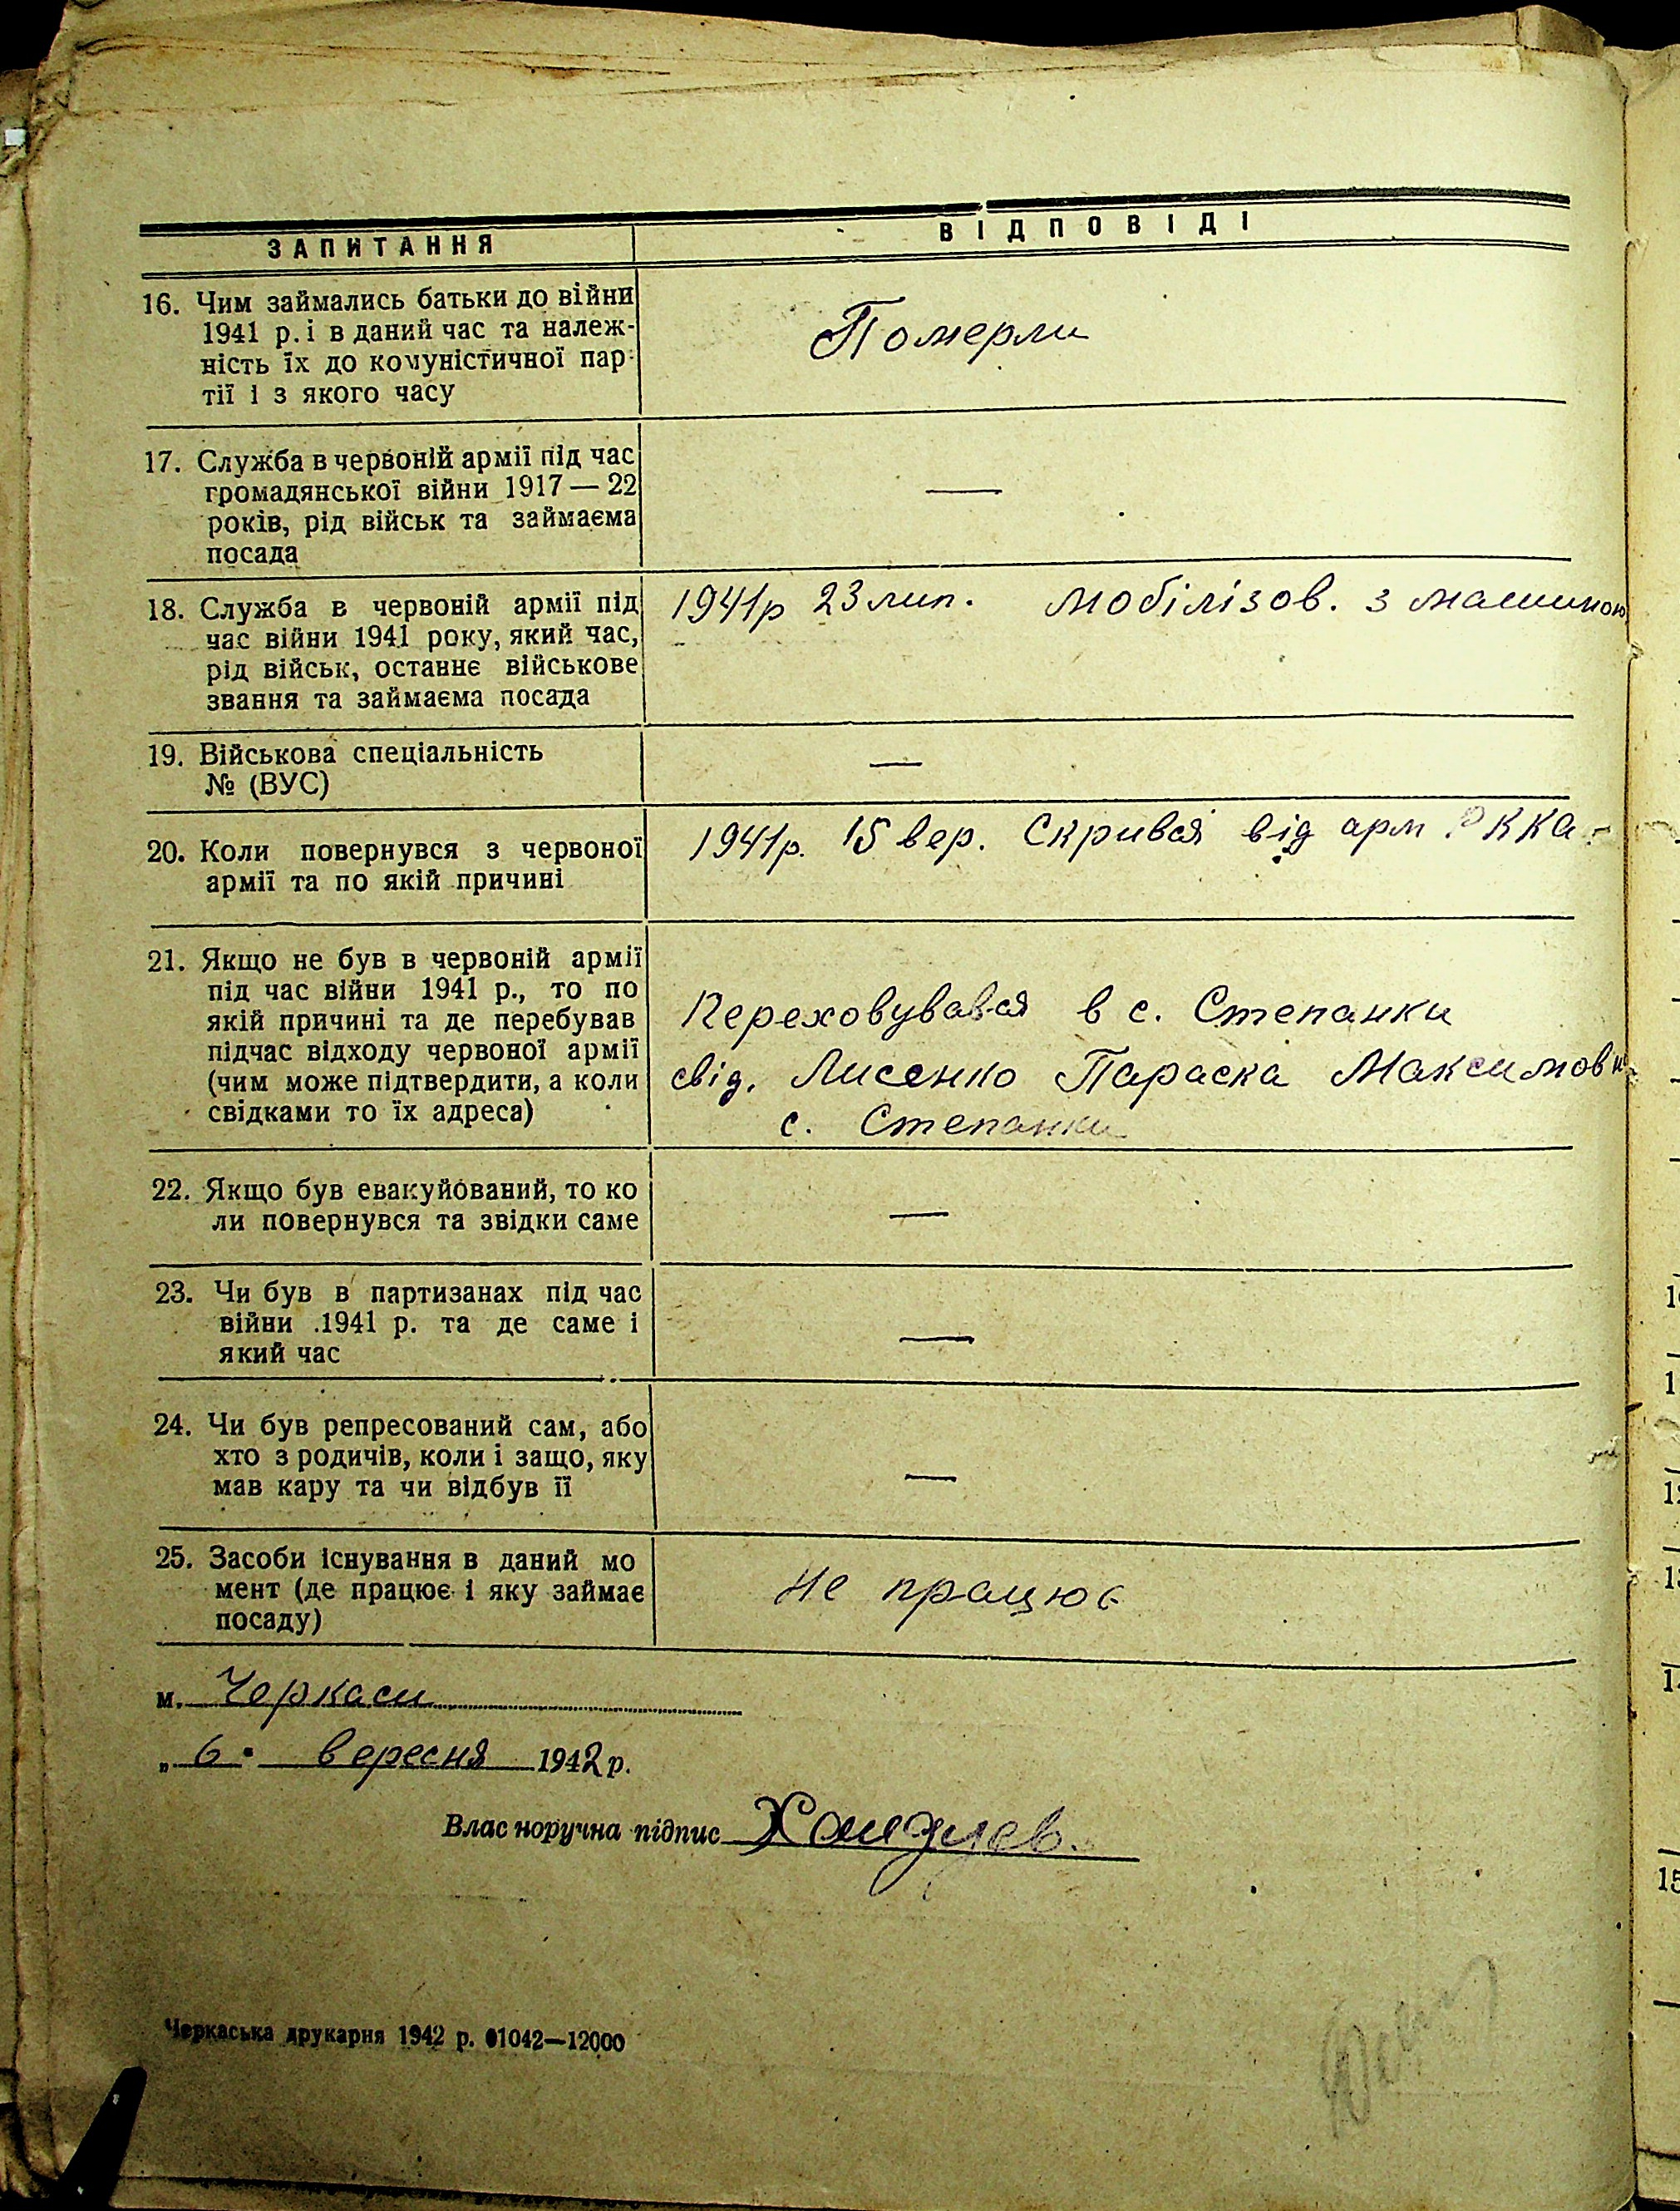 ЗАПИТАННЯ
ВІДПОВІДІ
16. Чим займались батьки до війни
1941 р. і в даний час та належ-
ність їх до комуністичної пар-
тії і з якого часу
Померли
17. Служба в червоній армії під час
громадянської війни 1917—22
років, рід військ та займаєма
посада
—
18. Служба в червоній армії під
час війни 1941 року, який час,
рід військ, останнє військове
звання та займаєма посада
1941р 23 лип. мобілізов. з машиною
19. Військова спеціальність
№ (ВУС)
—
20. Коли повернувся з червоної
армії та по якій причині
1941р. 15 вер. Скривая від арм. РККА.
21. Якщо не був в червоній армії
під час війни 1941 р., то по
якій причині та де перебував
підчас відходу червоної армії
(чим може підтвердити, а коли
свідками то їх адреса)
Переховувався в с. Степанки
свід. Лисенко Параска Максимовн
с. Степанки
22. Якщо був евакуйований, то ко
ли повернувся та звідки саме
—
23. Чи був в партизанах під час
війни 1941 р. та де саме і
який час
—
24. Чи був репресований сам, або
хто з родичів, коли і защо, яку
мав кару та чи відбув її
—
25. Засоби існування в даний мо
мент (де працює і яку займає
посаду)
Не працює
м. Черкаси
„ 6 " вересня 1942 р.
Власноручна підпис
Черкаська друкарня 1942 р. 01042—12000